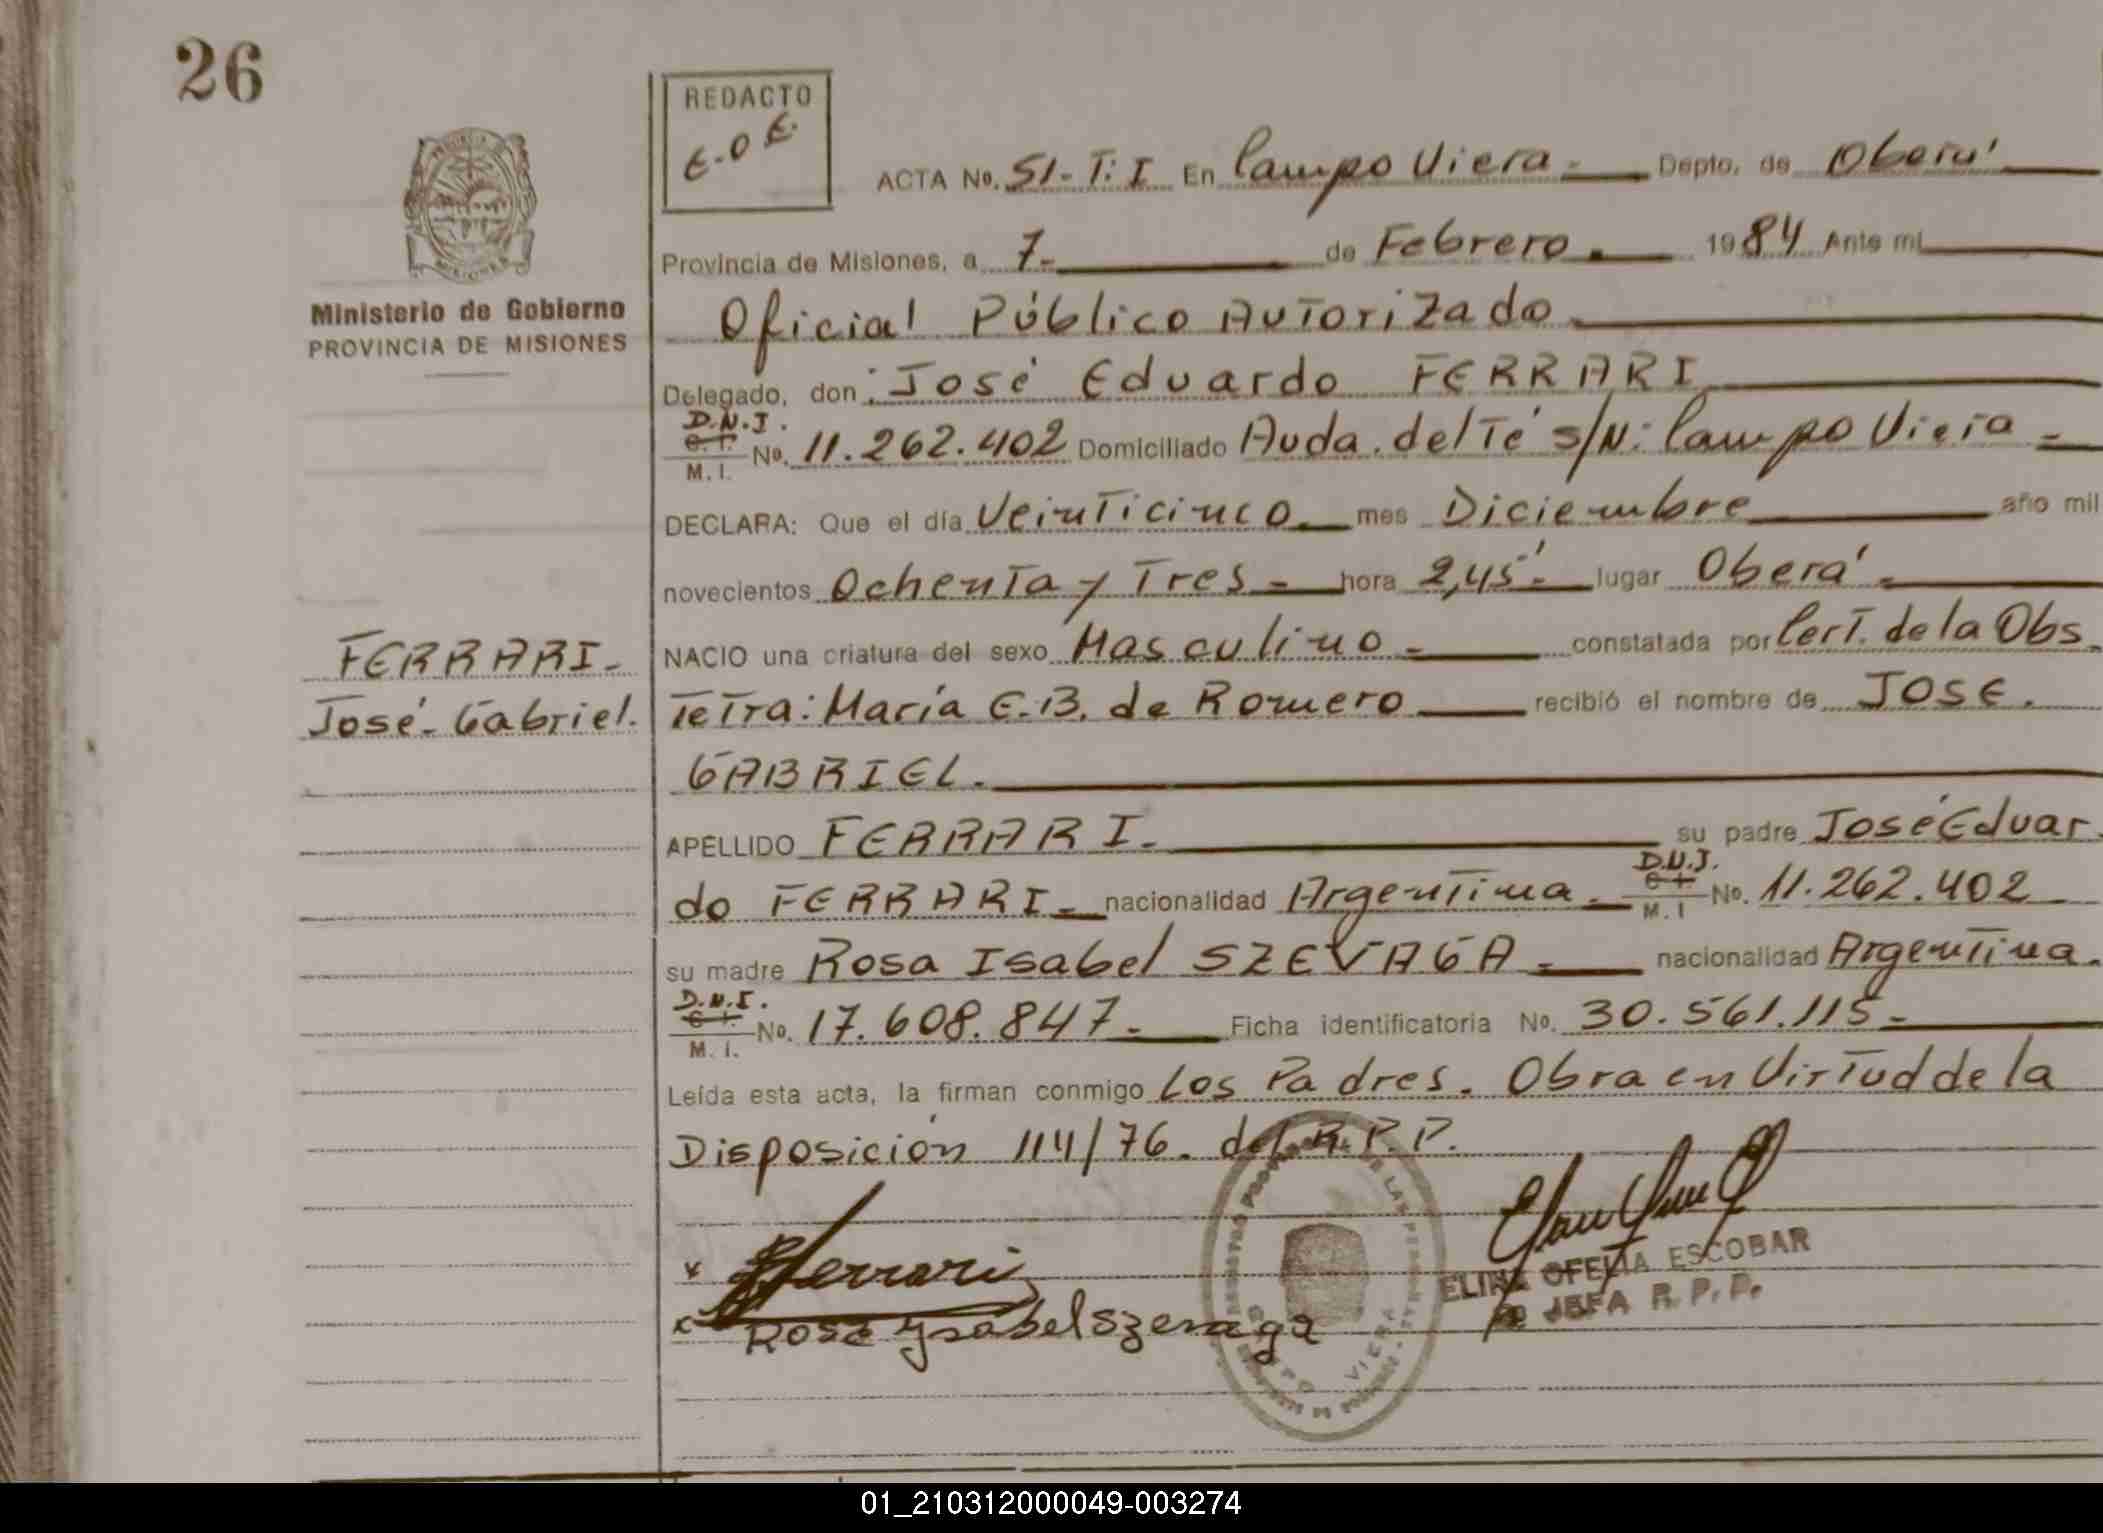 26
REDACTO
E.O.E.
ACTA No. 51-T: I En Campo Viera - Depto. de Oberá
Provincia de Misiones, a 7- de Febrero. 1984 Ante mi
Ministerio de Gobierno
PROVINCIA DE MISIONES
Oficial Público Autorizado
Delegado, don: José Eduardo FERRARI
D.N.I.
C.I.
M.I. No. 11.262.402 Domiciliado Avda. del Té s/N: Campo Viera -
DECLARA: Que el día Veinticinco mes Diciembre año mil
novecientos Ochenta y Tres - hora 2,45' - lugar Oberá -
FERRARI -
José - Gabriel.
NACIO una criatura del sexo Masculino - constatada por Cert. de la Obs
tetra: María E.B. de Romero recibió el nombre de JOSE.
GABRIEL.
APELLIDO FERRARI. su padre José Eduar
do FERRARI - nacionalidad Argentina - D.N.I. C.I. M.I No. 11.262.402
su madre Rosa Isabel SZEVAGA - nacionalidad Argentina.
D.N.I.
C.I.
M.I. No. 17.608.847 - Ficha identificatoria No. 30.561.115 -
Leída esta acta, la firman conmigo Los Padres. Obra en Virtud de la
Disposición 114/76. del R.P.P.
x Ferrari
x Rosa Ysabel Szevaga
CAMPO VIERA
ELINA OFELIA ESCOBAR
JEFA R.P.P.
01_210312000049-003274